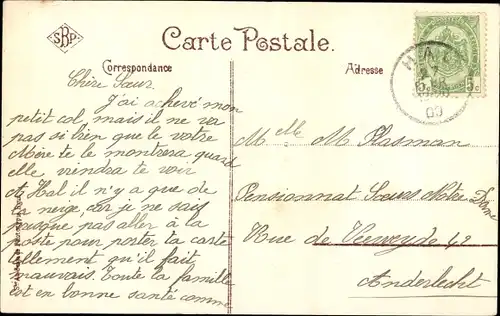 SBP
Carte Postale.
Correspondance
Adresse
5c 5c
HAL
09
Chère Sœur
J'ai achevé mon
petit col, mais il ne va
pas si bien que le votre
Mère te le montrera quand
elle viendra te voir
A Hal il n'y a que de
la neige, car je ne sais
presque pas aller à la
poste pour porter la carte
tellement qu'il fait
mauvais. Toute la famille
est en bonne santé comme
Melle M. Plasman
Pensionnat Sœurs Notre Dâme
Rue de Veeweyde 42
Anderlecht